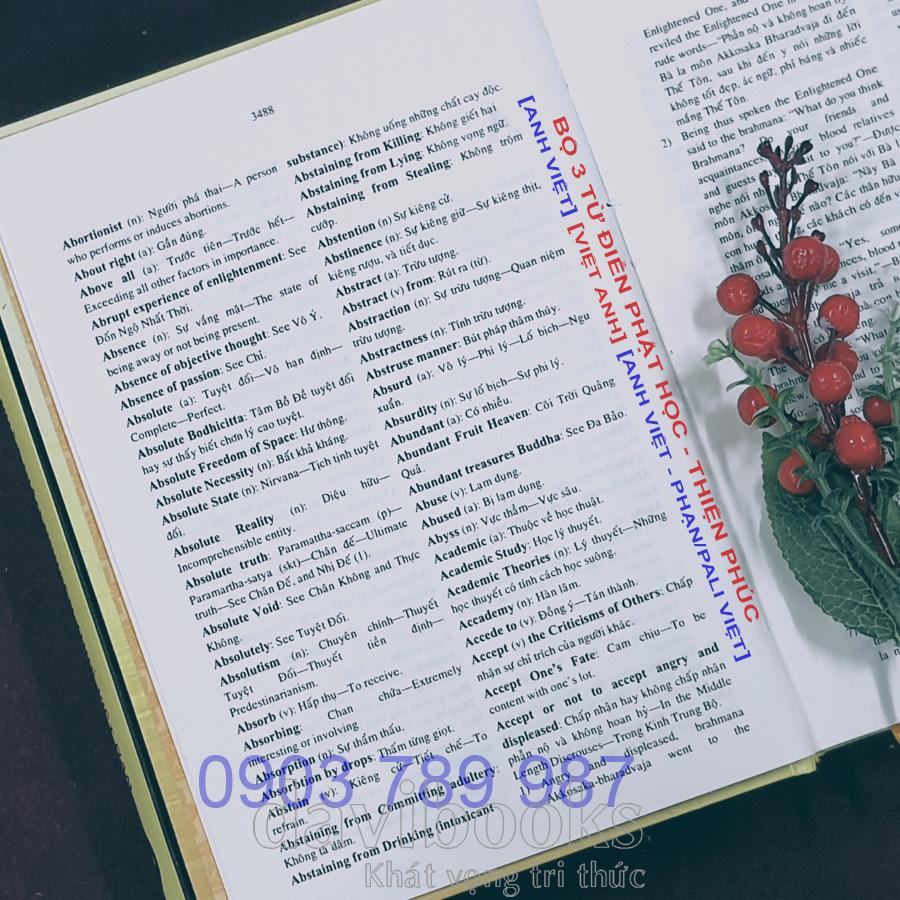 3488
Abortionist (n): Người phá thai—A person
who performs or induces abortions.
About right (a): Gần đúng.
Above all (a): Trước tiên—Trước hết—
Exceeding all other factors in importance.
Abrupt experience of enlightenment: See
Đốn Ngộ Nhất Thời.
Absence (n): Sự vắng mặt—The state of
being away or not being present.
Absence of objective thought: See Vô Ý.
Absence of passion: See Chỉ.
Absolute (a): Tuyệt đối—Vô hạn định—
Complete—Perfect.
Absolute Bodhicitta: Tâm Bồ Đề tuyệt đối
hay sự thấy biết chơn lý cao tuyệt.
Absolute Freedom of Space: Hư thông.
Absolute Necessity (n): Bất khả kháng.
Absolute State (n): Nirvana—Tịch tịnh tuyệt
đối.
Absolute Reality (n): Diệu hữu—
Incomprehensible entity.
Absolute truth: Paramattha-saccam (p)—
Paramartha-satya (skt)—Chân đế—Ultimate
truth—See Chân Đế, and Nhị Đế (1).
Absolute Void: See Chân Không and Thực
Không.
Absolutely: See Tuyệt Đối.
Absolutism (n): Chuyên chính—Thuyết
Tuyệt Đối—Thuyết tiền định—
Predestinarianism.
Absorb (v): Hấp thụ—To receive.
Absorbing: Chan chứa—Extremely
interesting or involving
Absorption (n): Sự thẩm thấu.
Absorbtion by drops: Thấm từng giọt.
Abstain (v): Kiêng cử—Tiết chế—To
refrain.
Abstaining from Committing adultery:
Không tà dâm.
Abstaining from Drinking (intoxicant
substance): Không uống những chất cay độc.
Abstaining from Killing: Không giết hại
Abstaining from Lying: Không vọng ngữ.
Abstaining from Stealing: Không trộm
cướp.
Abstention (n) Sự kiêng cử.
Abstinence (n): Sự kiêng giữ—Sự kiêng thịt,
kiêng rượu, và tiết dục.
Abstract (a): Trừu tượng.
Abstract (v) from: Rút ra (từ).
Abstraction (n): Sự trừu tượng—Quan niệm
trừu tượng.
Abstractness (n): Tính trừu tượng.
Abstruse manner: Bút pháp thâm thúy.
Absurd (a): Vô lý—Phi lý—Lố bịch—Ngu
xuẩn.
Absurdity (n): Sự lố bịch—Sự phi lý.
Abundant (a): Có nhiều.
Abundant Fruit Heaven: Cõi Trời Quảng
Quả.
Abundant treasures Buddha: See Đa Bảo.
Abuse (v): Lạm dụng.
Abused (a): Bị lạm dụng.
Abyss (n): Vực thẳm—Vực sâu.
Academic (a): Thuộc về học thuật.
Academic Study: Học lý thuyết.
Academic Theories (n): Lý thuyết—Những
học thuyết có tính cách học suông.
Academy (n): Hàn lâm.
Accede to (v): Đồng ý—Tán thành.
Accept (v) the Criticisms of Others: Chấp
nhận sự chỉ trích của người khác.
Accept One's Fate: Cam chịu—To be
content with one's lot.
Accept or not to accept angry and
displeased: Chấp nhận hay không chấp nhận
phẫn nộ và không hoan hỷ—In the Middle
Length Discourses—Trong Kinh Trung Bộ.
1) Angry and displeased, brahmana
Akkosaka bharadvaja went to the
Enlightened One, and
reviled the Enlightened One in
rude words—"Phẫn nộ và không hoan hỷ
Bà la môn Akkosaka Bharadvaja đi đến
Thế Tôn, sau khi đến y nói những lời
không tốt đẹp, ác ngữ, phỉ báng và nhiếc
mắng Thế Tôn.
2) Being thus spoken the Enlightened One
said to the brahmana: "What do you think
Brahmana? Do your friends and
acquaintances blood relatives
and guests to you?"—Được
nghe nói Tôn nói với Bà
BỘ 3 TỪ ĐIỂN PHẬT HỌC - THIỆN PHÚC
[ANH VIỆT] [VIỆT ANH] [ANH VIỆT - PHẠN/PALI VIỆT]
0903 789 987
davibooks
Khát vọng tri thức